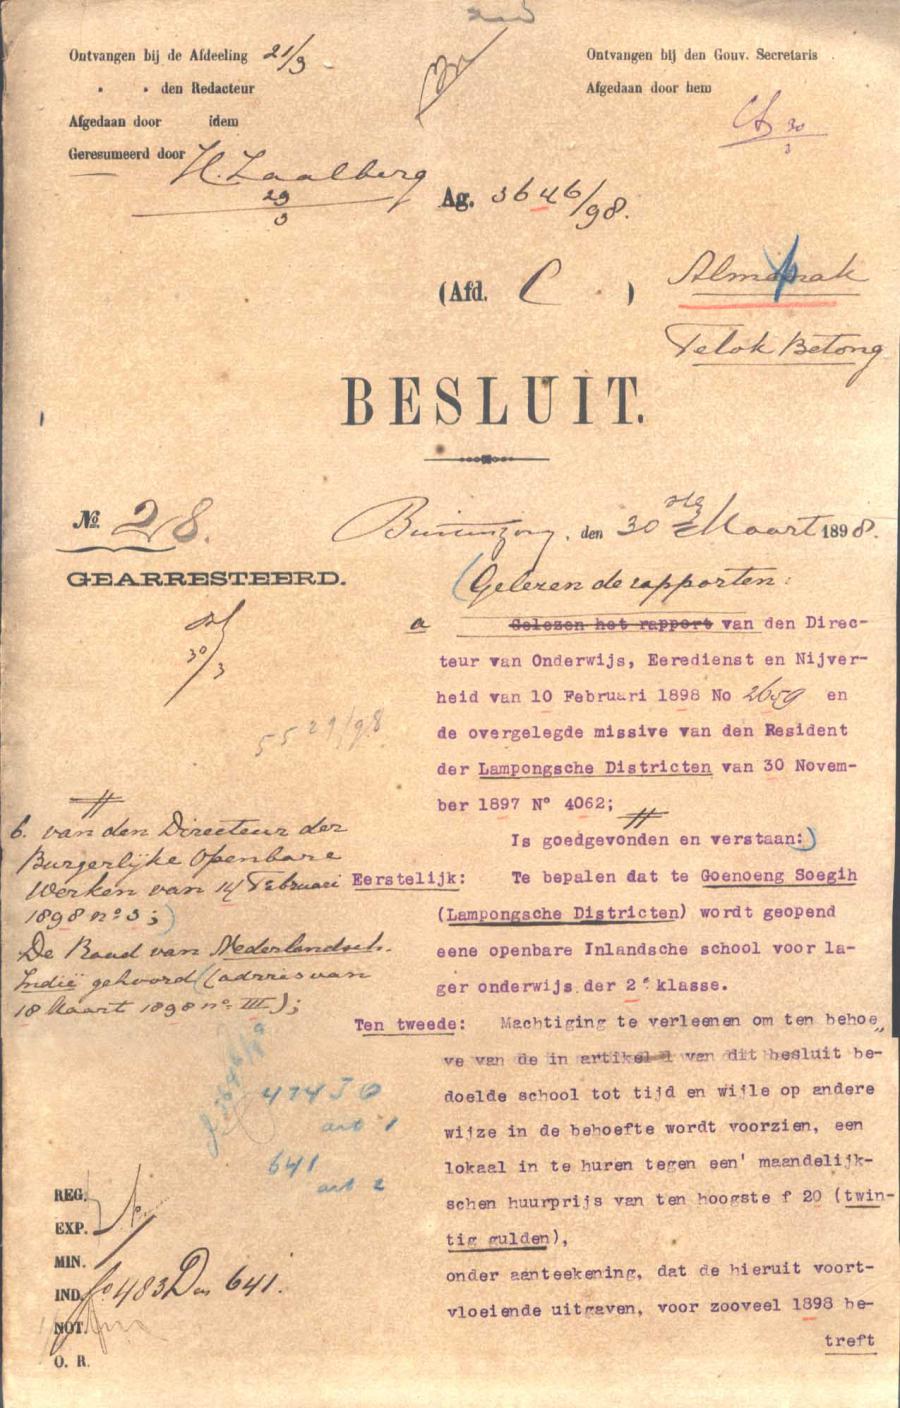 Ontvangen bij de Afdeeling 21/3
" " den Redacteur
Afgedaan door idem
Geresumeerd door H. Zaalberg
29
3
Ontvangen bij den Gouv. Secretaris
Afgedaan door hem
30
3
Ag. 3646/98.
(Afd. C. )
Almanak
Telok Betong
BESLUIT.
No. 28.
Buitenzorg, den 30ste Maart 1898.
GEARRESTEERD.
30/3
5529/98
(Gelezen de rapporten:
a Gelezen het rapport van den Direc-
teur van Onderwijs, Eeredienst en Nijver-
heid van 10 Februari 1898 No 2659 en
de overgelegde missive van den Resident
der Lampongsche Districten van 30 Novem-
ber 1897 N° 4062; //
//
b. van den Directeur der
Burgerlijke Openbare
Werken van 14 Februari
1898 no 3;)
De Raad van Nederlandsch-
Indië gehoord (advies van
18 Maart 1898 no III);
Is goedgevonden en verstaan:)
Eerstelijk: Te bepalen dat te Goenoeng Soegih
(Lampongsche Districten) wordt geopend
eene openbare Inlandsche school voor la-
ger onderwijs der 2e klasse.
Ten tweede: Machtiging te verleenen om ten behoe„
ve van de in artikel 1 van dit besluit be-
doelde school tot tijd en wijle op andere
wijze in de behoefte wordt voorzien, een
lokaal in te huren tegen een' maandelijk-
schen huurprijs van ten hoogste f 20 (twin-
tig gulden),
onder aanteekening, dat de hieruit voort-
vloeiende uitgaven, voor zooveel 1898 be-
treft
art 1
641
art 2
REG.
EXP.
MIN.
IND. fo 483 Dn 641.
NOT.
O. R.